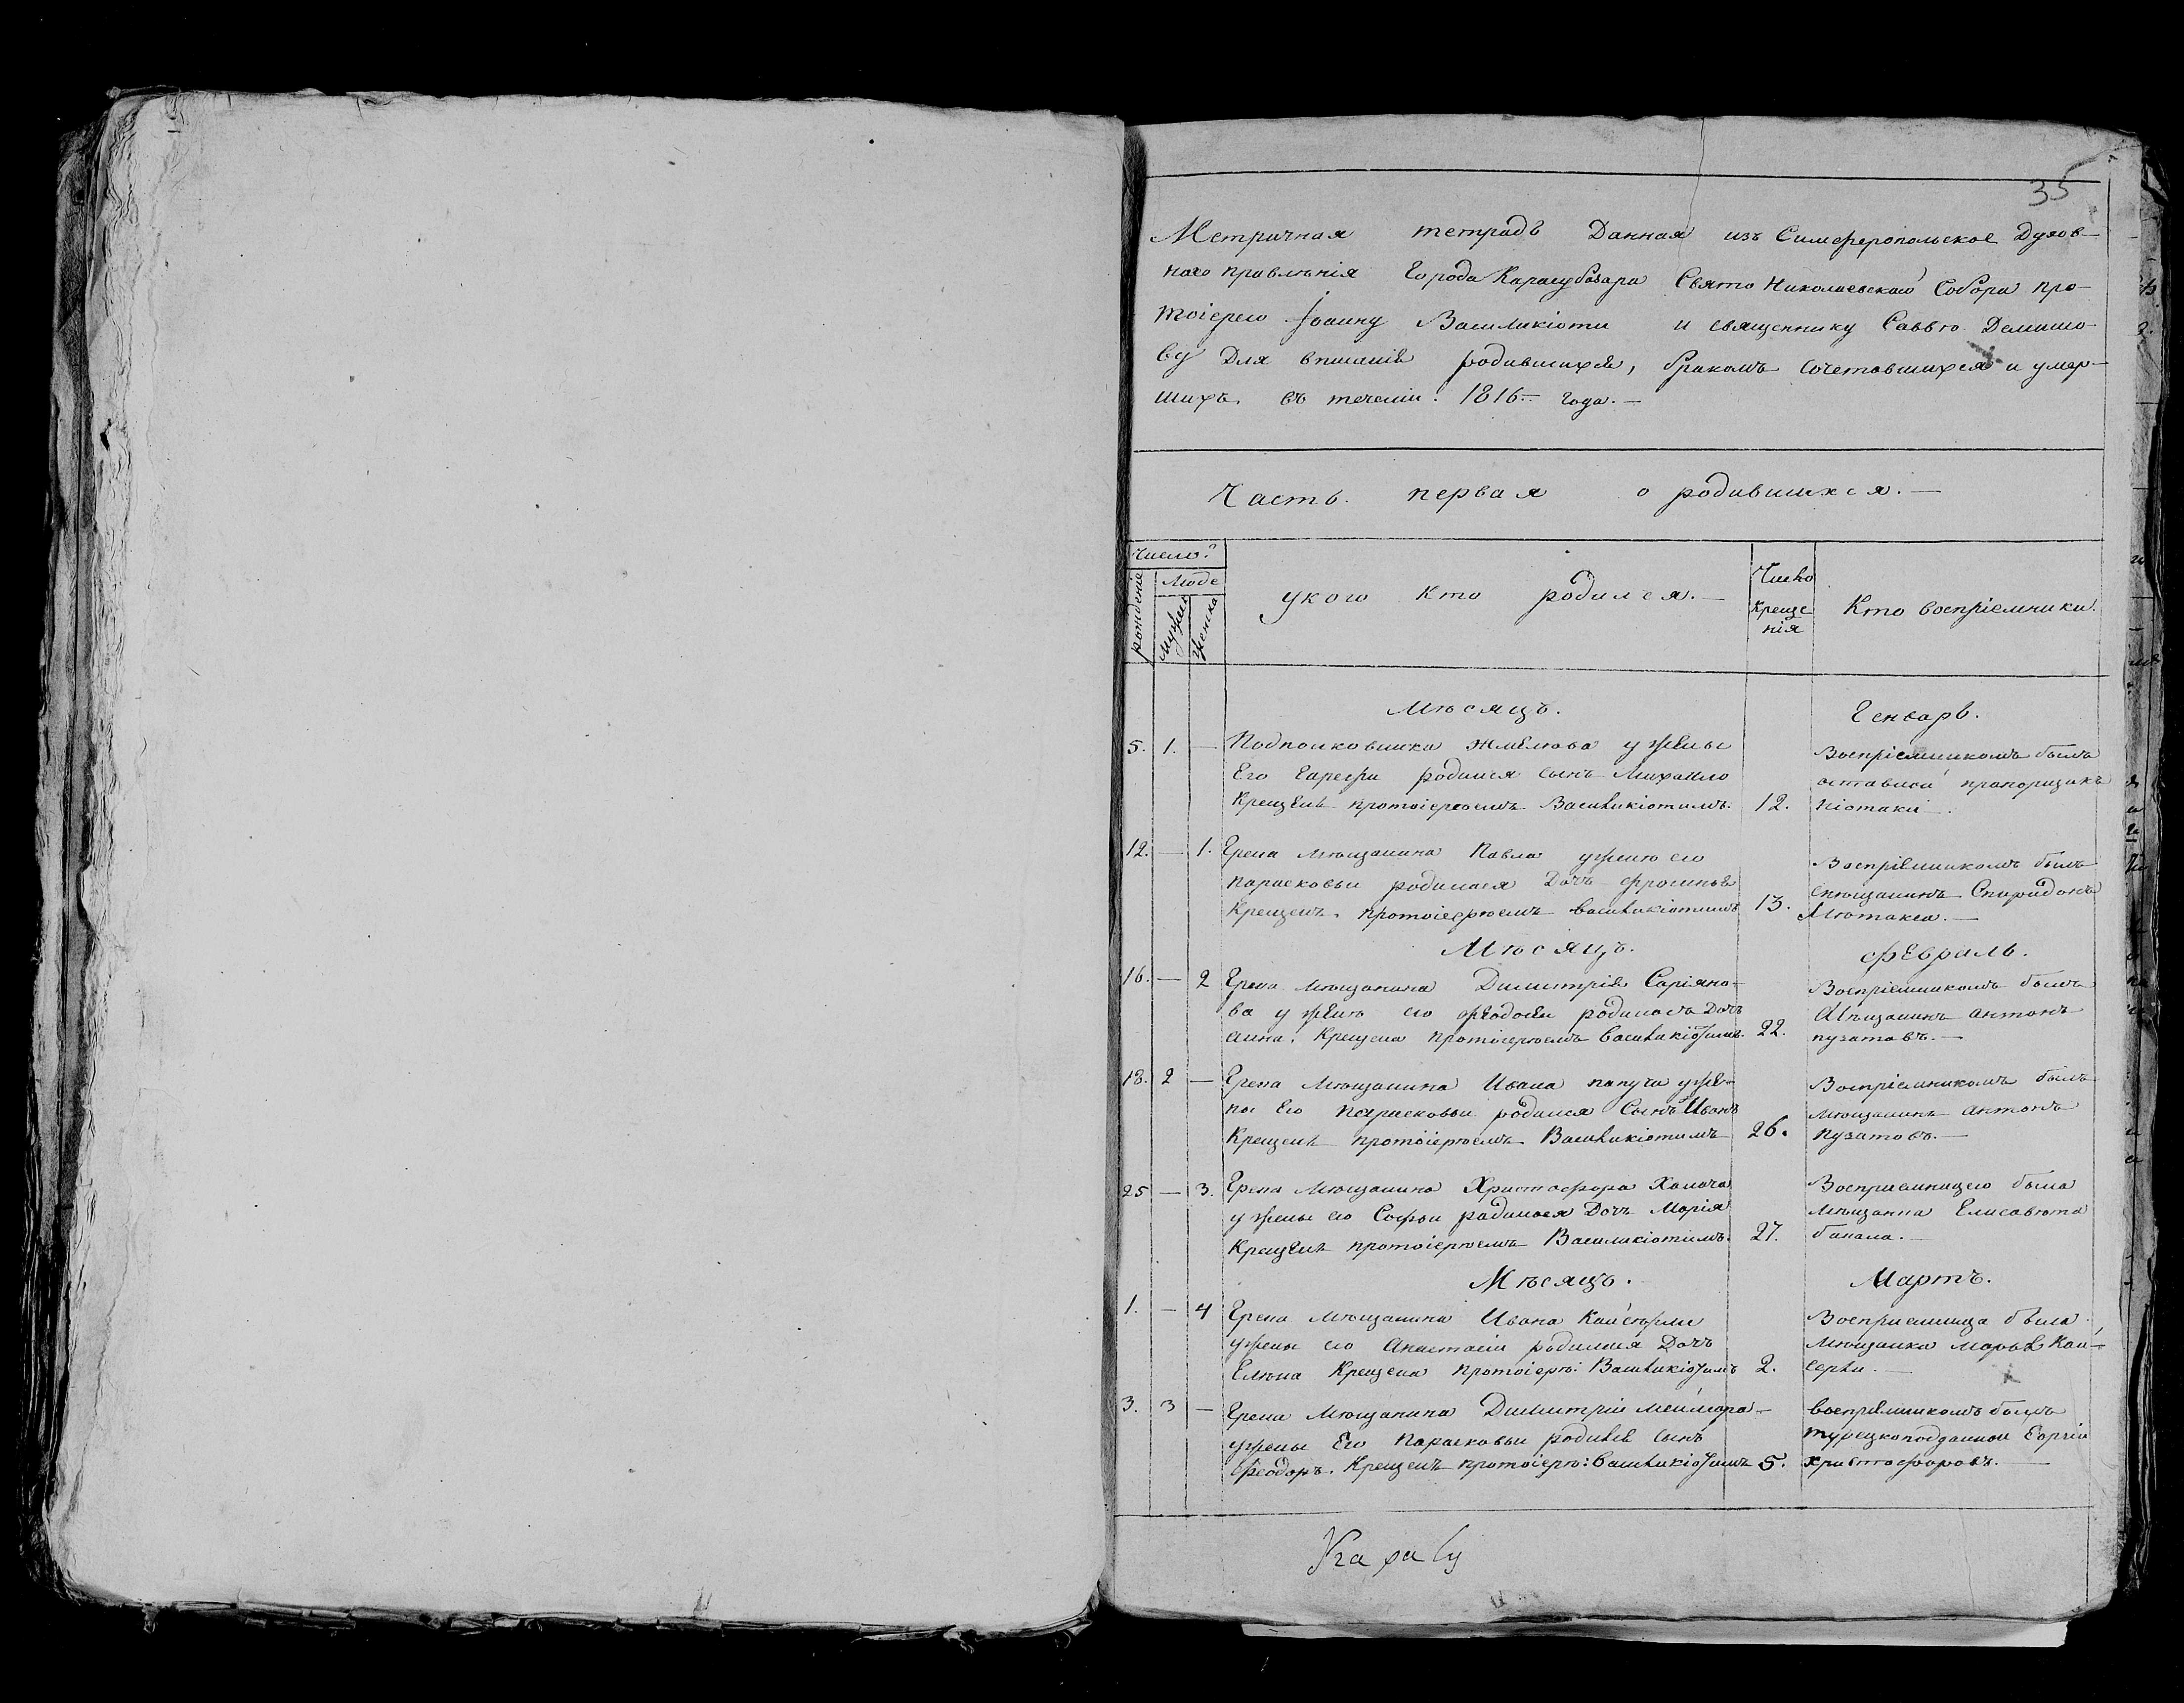 35
Метричная тетрадь Данная изъ Симферопольское Духов-
наго правленія Города Карасубазара Свято Николаевскаго Собора про-
тоіерею Іоанну Василикіоти и священнику Саввѣ
ву Для вписанія родившихся, бракомъ сочетавшихся и умер-
шихъ. въ теченіи. 1816 – года. –
Часть. первая о родившихся. –
Число:
рожденіе
Люде
мужес
женска
укого кто родился. –
Число
креще
нія
Кто воспріемники.
Мѣсяцъ. Генварь.
5. 1. – Подполковника у жены
Его родился сынъ Михаило
Крещенъ протоіереемъ Василикіотимъ. 12.
Воспріемникомъ былъ
отставной прапорщикъ
12. – 1. Грека мѣщанина Павла ужены его
Парасковьи родилася Дочь
Крещенъ. протоіереемъ василикіотимъ 13.
Воспріемникомъ былъ
мѣщанинъ Спиридонъ
Мѣтакса. –
Мѣсяцъ. Февраль.
16. – 2 Грека мѣщанина Димитрія Саріяно-
ва у жены его Феодосіи родилась Дочь
анна. Крещена протоіереемъ василикіотимъ. 22.
Воспріемникомъ былъ
Мѣщанинъ антонъ
пузатовъ. –
18. 2 – Грека Мѣщанина Ивана папучи ужо-
ны Его парасковьи родился Сынъ Иванъ
Крещенъ протоіереемъ Василикіотимъ 26.
Воспріемникомъ былъ
мѣщанинъ антонъ
пузатовъ. –
25 – 3. Грека Мѣщанина Христофора Халача
у жены его Софьи родилася Дочь Марія
Крещенъ протоіереемъ Василикіотимъ. 27.
Восприемницею была
мѣщанка Елисавета
бакала. –
Мѣсяцъ. Мартъ.
1. – 4 Грека мѣщанина Ивана
ужены его Анастасіи родилася Дочь
Елена Крещена протоіерѣ: Василикіотимъ 2.
Восприемница была
мѣщанка марья Кай-
серли. –
3. 3 – Грека Мѣщанина Димитрія
ужены Его Парасковьи родился сынъ
Феодоръ. Крещенъ протоіерѣ: василикіотимъ 5.
воспріемникомъ былъ
турецкоподданной Еоргій
христофоровъ. –